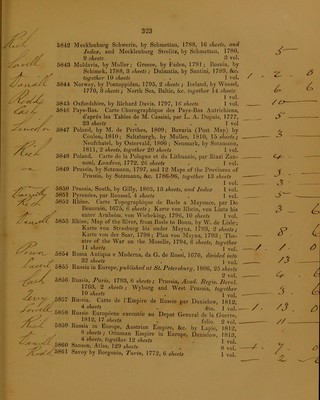 323
5842 Mecklenburg Schwerin, by Schmettau, 1788, 16 sheets, and
Index, and Mecklenburg Strelitz, by Schmettau, 1780,
9 sheets 2 vol.
5843 Moldavia, by Muller; Greece, by Faden, 1791; Bosnia, by
Schimek, 1788, 3 sheets; Dalmatia, by Santini, 1780, &c.
together 10 sheets 1 vol.
5844 Norway, by Pontoppidan, 1795, 2 sheets; Iceland, by Wetand,
1770, 8 sheets; North Sea, Baltic, &c. together 14 sheets
1 vol.
5845 Oxfordshire, by Richard Davis, 1797, 16 sheets 1 vol.
5846 Pays-Bas. Carte Chorographique des Pays-Bas Autrichiens,
d'après les Tables de M. Cassini, par L. A. Dupuis, 1777,
23 sheets 1 vol.
5847 Poland, by M. de Perthes, 1809; Bavaria (Post Map) by
Coulon, 1810; Saltzburgh, by Moller, 1810, 15 sheets;
Neufchatel, by Osterwald, 1806; Neumark, by Sotzmann,
1811, 2 sheets, together 20 sheets 1 vol.
5848 Poland. Carte de la Pologne et du Lithuanie, par Rizzi Zan-
noni, Londres, 1772, 25 sheets 1 vol.
5849 Prussia, by Sotzmann, 1797, and 12 Maps of the Provinces of
Prussia, by Sotzmann, &c. 1786-96, together 13 sheets
1 vol.
5850 Prussia, South, by Gilly, 1803, 13 sheets, and Index 1 vol.
5851 Pyrenées, par Roussel, 4 sheets 1 vol.
5852 Rhine. Carte Topographique de Basle a Mayence, par De
Beaurain, 1675, 6 sheets; Karte von Rhein, von Linrts bis
unter Arnheim, von Wiebeking, 1796, 10 sheets 1 vol.
5853 Rhine, Map of the River, from Basle to Bonn, by W. de Lisle;
Karte von Strasburg bis under Maynz, 1793, 2 sheets;
Karte von der Saar, 1798; Plan von Maynz, 1793; Thea-
tre of the War on the Moselle, 1794, 6 sheets, together
11 sheets 1 vol.
5854 Roma Antiqua e Moderna, da G. de Rossi, 1676, divided into
23 sheets 1 vol.
5855 Russia in Europe, published at St. Petersburg, 1806, 25 sheets
2 vol.
5856 Russia, Paris, 1783, 6 sheets; Prussia, Acad. Regia Berol.
1763, 2 sheets; Wyborg and West Prussia, together
10 sheets 1 vol.
5857 Russia. Carte de l'Empire de Russie par Danielow, 1812,
4 sheets fm. 1 vol.
5858 Russie Européene executée au Depot General de la Guerre,
1812, 17 sheets folio. 2 vol.
5859 Russia in Europe, Austrian Empire, &c. by Lapie, 1812,
8 sheets; Ottoman Empire in Europe, Danielow, 1813,
4 sheets, together 12 sheets 1 vol.
5860 Sanson, Atlas, 129 sheets 8 vol.
5861 Savoy by Borgonio, Turin, 1772, 6 sheets 1 vol.